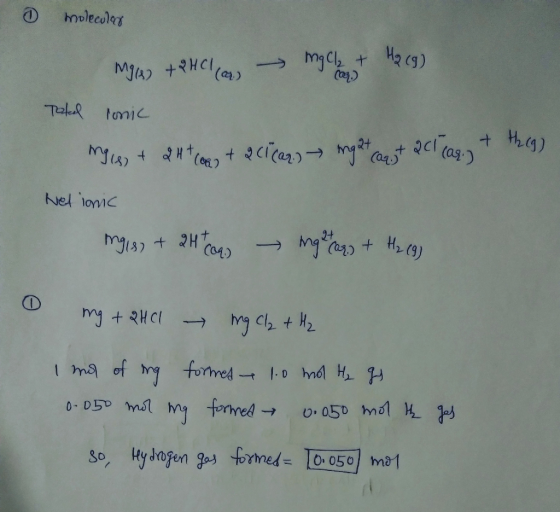 ① molecular
Mg(s) + 2HCl (aq.) → MgCl₂ (aq.) + H₂(g)
Total ionic
Mg(s) + 2H⁺(aq.) + 2Cl⁻(aq.) → Mg²⁺(aq.) + 2Cl⁻(aq.) + H₂(g)
Net ionic
Mg(s) + 2H⁺(aq.) → Mg²⁺(aq.) + H₂(g)
① Mg + 2HCl → MgCl₂ + H₂
1 mol of Mg formed → 1.0 mol H₂ gs
0.050 mol Mg formed → 0.050 mol H₂ gas
So, Hydrogen gas formed = 0.050 mol